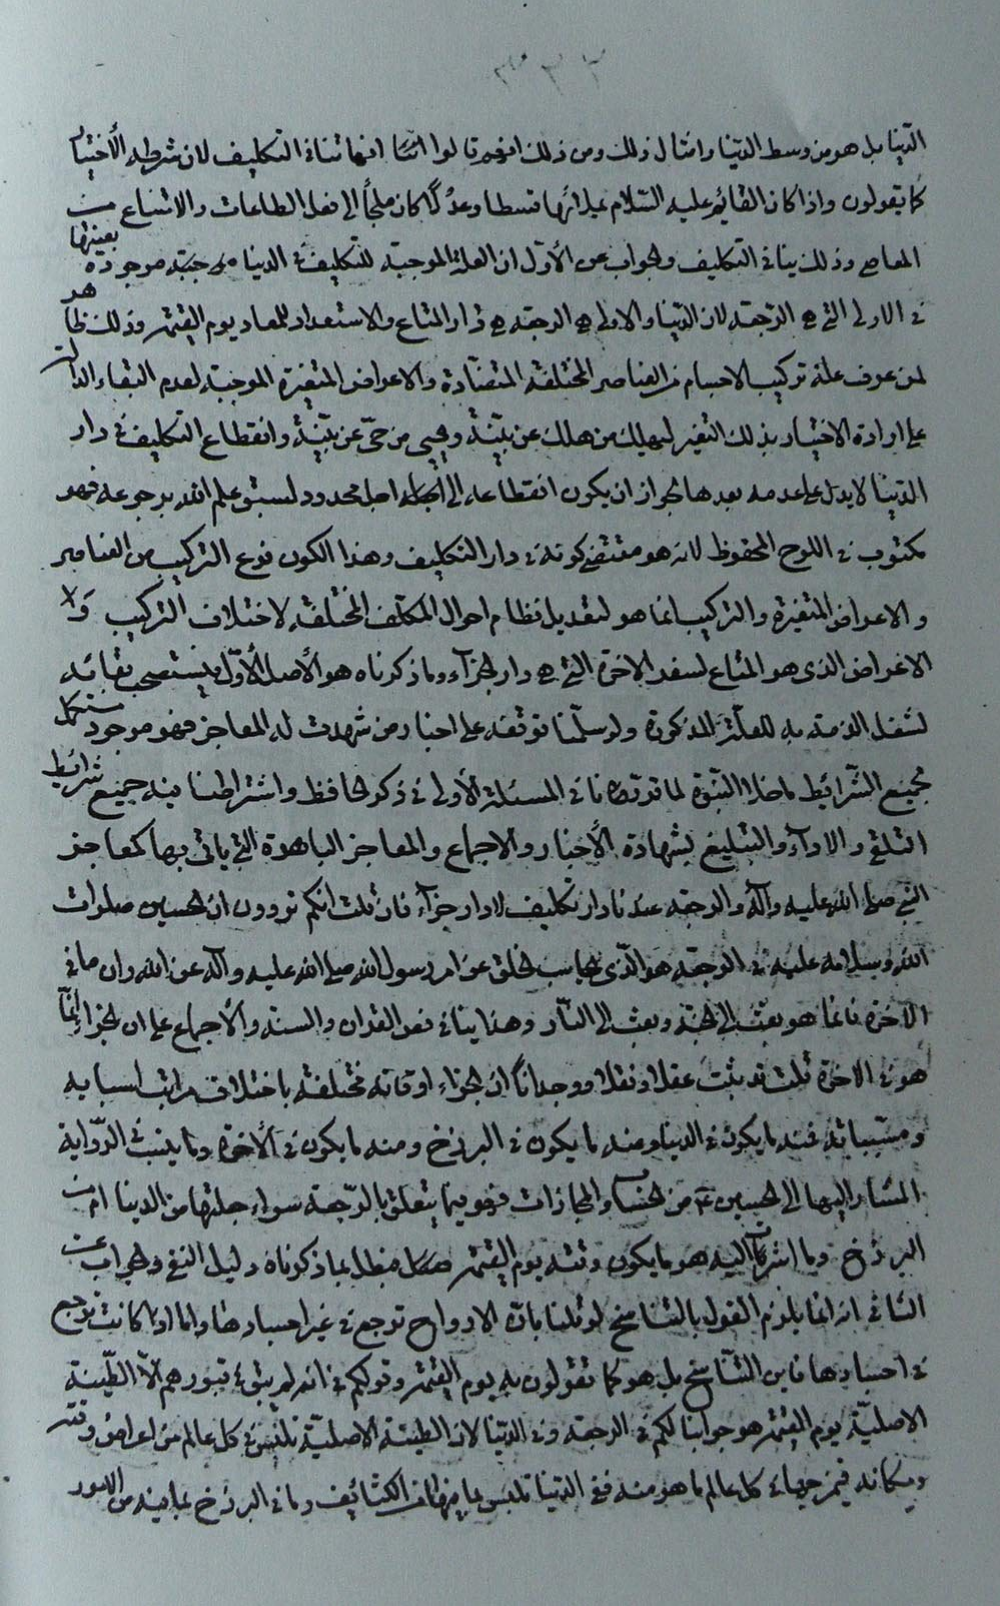 الدّنيا بل هو من وسط الدّنيا وامثال ذلك ومن ذلك انهم قالوا ايضا انها تنافى التكليف لان شرطه الأختيار
كما يقولون واذا كان القائم عليه السّلام يملأها قسطا وعدلًا كان ملجأً الى فعل الطاعات والامتناع من
المعاصى وذلك ينافى التكليف والجواب عن الأوّل ان العلة الموجبة للتكليف فى الدنيا موجبة موجودة بعينها
فى الاولى التى هى الرجعة لان الدّنيا والاولى هى الرجعة هى دار المتاع والاستعداد للمعاد يوم القيمة وذلك ظاهر
لمن عرف علة تركيب الاجسام من العناصر المختلفة المتضادة والاعراض المتغيرة الموجبة لعدم البقاء الدالة
على ارادة الاختيار بذلك التغير ليهلك من هلك عن بيّنة ويحيى من حىّ عن بيّنة وانقطاع التكليف فى دار
الدّنيا لا يدل على عدمه بعدها لجواز ان يكون انقطاعه الى اجل محدود لسبق علم الله برجوعه فهو
مكتوب فى اللوح المحفوظ لانه هو مقتضى كونه فى دار التكليف وهذا الكون نوع التركيب من العناصر
والاعراض المتغيرة والتركيب انما هو لتعديل نظام احوال المكلف المختلفة لاختلاف التركيب ولا
الاعراض الذى هو المتاع لسفر الاخرة التى هى دار الجزآء وما ذكرناه هو الأصل الأوّل فيستصحب بقائه
لشغل الذمة به للعلة المذكورة ولو سلّمنا توقفه على اخبار من شهدت له المعاجز فهو موجود مستكمل
لجميع الشّرائط ما خلا النّبوّة لما قد فى المسئلة الأولى فى ذكر الحافظ واشتراطنا فيه جميع شرائط
التلقى والادآء والتبليغ بشهادة الأخبار والاجماع والمعاجز الباهرة التى ياتى بها كمعاجز
النبى صلى الله عليه وآله والرجعة عندنا دار تكليف لا دار جزآء فان قلت انكم تروون ان الحسين صلوات
الله وسلامه عليه فى الرجعة هو الّذى يحاسب الخلق عن امر رسول الله صلى الله عليه وآله عن الله وان ما فى
الآخرة فانما هو بعث الى الجنة وبعث الى النّار وهذا ينافى نص القران والسنة والأجماع على ان الجزاء انمّا
هو فى الاخرة قلت قد ثبت عقلا ونقلا ووجدانًا ان الجزاء اوقاته مختلفة باختلاف مراتب اسبابه
ومسبباته فمنه ما يكون فى الدنيا ومنه ما يكون فى البرزخ ومنه ما يكون فى الأخرة وما ينسب فى الرّواية
المشار اليها الى الحسين ع من الحساب والمجازات فهو فيما يتعلق بالرّجعة سواء جعلتها من الدنيا ام من
البرزخ وما اشرتم اليه هو ما يكون وقته يوم القيمة فبطل بما ذكرناه دليل النفى والجواب عن
الثانى انه انما يلزم القول بالتناسخ لو قلنا بانّ الارواح ترجع فى غير اجسادها واما اذا كانت ترجع
فى اجسادها فاين التّناسخ بل هو كما تقولون به يوم القيمة وقولكم فى انه لم يبق فى قبورهم الّا الطّينة
الاصليّة يوم القيمة هو جوابنا لكم فى الرجعة وفى الدّنيا لان الطينة الاصليّة تلبس فى كل عالم من اعراض وقته
ومكانه كل عالم ما هو منه ففى الدّنيا تلبس ما فيها من الكثائف وما فى البرزخ بما فيه من الصور